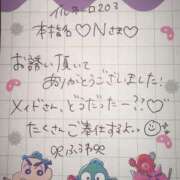 イルネーロ203
本指名♡Nさま♡
お誘い頂いて
ありがとうございました!
メイドさん、どうだったー??♡
たくさんご奉仕するよっ
ふうか